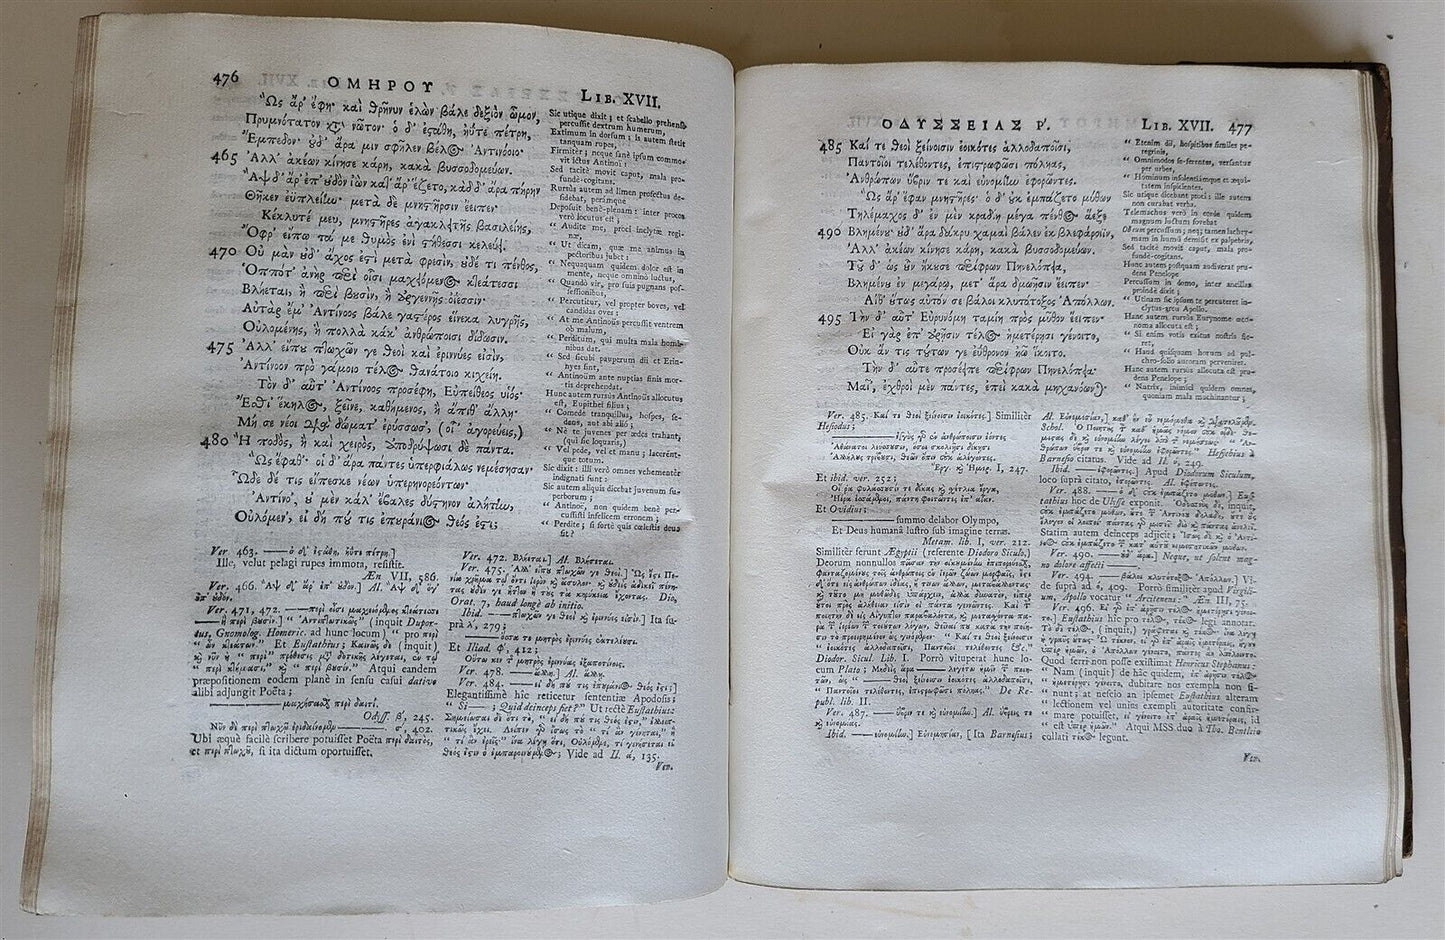 476 ΟΜΗΡΟΥ LIB. XVII.
Ὣς ἄρ' ἔφη· καὶ θρῆνυν ἑλὼν βάλε δεξιὸν ὦμον,
Πρυμνότατον κτ̀ νῶτον· ὁ δ' ἐςάθη, ἠΰτε πέτρη,
Ἔμπεδον· ȣ̓δ' ἄρα μιν σφῆλεν βέλος Ἀντινόοιο·
465 Ἀλλ' ἀκέων κίνησε κάρη, κακὰ βυσσοδομεύων.
Ἂψ δ' ἄρ' ἐπ' ȣ̓δὸν ἰὼν κατ' ἄρ' ἕζετο, κὰδ δ' ἄρα πήρην
Θῆκεν ἐϋπλείην· μετὰ δὲ μνηςῆρσιν ἔειπεν·
Κέκλυτέ μευ, μνηςῆρες ἀγακλειτῆς βασιλείης,
Ὄφρ' εἴπω τά με θυμὸς ἐνὶ ςήθεσσι κελεύει.
470 Οὐ μὰν ȣ̓δ' ἄχος ἐςὶ μετὰ φρεσὶν, ȣ̓δέ τι πένθος,
Ὁππότ' ἀνὴρ περὶ οἷσι μαχειόμενος κτεάτεσσι
Βλήεται, ἢ περὶ βȣσὶν, ἢ ἀργεννῆς ὀΐεσσιν·
Αὐτὰρ ἔμ' Ἀντίνοος βάλε γαςέρος εἵνεκα λυγρῆς,
Οὐλομένης, ἣ πολλὰ κάκ' ἀνθρώποισι δίδωσιν.
475 Ἀλλ' εἴπȣ πτωχῶν γε θεοὶ καὶ ἐριννύες εἰσὶν,
Ἀντίνοον πρὸ γάμοιο τέλος θανάτοιο κιχείη.
Τὸν δ' αὖτ' Ἀντίνοος προσέφη, Εὐπείθεος υἱός·
Ἔσθι' ἕκηλος, ξεῖνε, καθήμενος, ἢ ἄπιθ' ἄλλῃ·
Μή σε νέοι διὰ δώματ' ἐρύσσωσ', (οἷ' ἀγορεύεις,)
480 Ἢ ποδὸς, ἢ καὶ χειρὸς, ἀποδρύψωσι δὲ πάντα.
Ὣς ἔφαθ'· οἱ δ' ἄρα πάντες ὑπερφιάλως νεμέσησαν·
Ὧδε δέ τις εἴπεσκε νέων ὑπερηνορεόντων·
Ἀντίνο', ȣ̓ μὲν κάλ' ἔβαλες δύςηνον ἀλήτην,
Οὐλόμεν', εἰ δή πȣ τις ἐπȣράνιος θεός ἐςι;
Sic utique dixit; et scabello prehenso
percussit dextrum humerum,
Extimum in dorsum; is autem stetit
tanquam rupes,
Firmiter; neque sanè ipsum commo-
vit ictus Antinoi:
Sed tacitè movit caput, mala pro-
fundè-cogitans.
Rursus autem ad limen profectus de-
sidebat, peramque
Deposuit benè-plenam: inter procos
verò locutus est;
“ Audite me, proci inclytæ regi-
næ,
“ Ut dicam, quæ me animus in
pectoribus jubet:
“ Nequaquam quidem dolor est in
mente, neque omnino luctus,
“ Quandò vir, pro suis pugnans pos-
sessionibus,
“ Percutitur, vel propter boves, vel
candidas oves;
“ At me Antinoüs percussit ventrem
ob malum,
“ Perditum, qui multa mala homi-
nibus dat.
“ Sed sicubi pauperum dii et Erin-
nyes sint,
“ Antinoüm ante nuptias finis mor-
tis deprehendat.
Hunc autem rursùs Antinoüs allocutus
est, Eupithei filius;
“ Comede tranquillus, hospes, se-
dens, aut abi aliò;
“ Nè te juvenes per ædes trahant,
(quì sic loquaris,)
“ Vel pede, vel et manu; lacerént-
que totum.
Sic dixit: illi verò omnes vehementèr
indignati sunt:
Sic autem aliquis dicebat juvenum su-
perborum;
“ Antinoë, non quidem benè per-
cussisti infelicem erronem;
“ Perdite; si fortè quis cœlestis deus
sit?
Ver. 463. —ὁ δ' ἐςάθη, ἠΰτε πέτρη.]
Ille, velut pelagi rupes immota, resistit.
Æn VII, 586.
Ver. 466. Ἂψ δ' ἄρ' ἐπ' ȣ̓δόν.] Al. Ἂψ δ' ὅγ'
ἐπ' ȣ̓δόν.
Ver. 471, 472. —περὶ οἷσι μαχειόμενος κτεάτεσσι
—ἢ περὶ βȣσίν.] “ Ἀντιπτωτικῶς” (inquit Dupor-
tus, Gnomolog. Homeric. ad hunc locum) “ pro περὶ
Atqui eandem
præpositionem eodem planè in sensu casui dativo
alibi adjungit Poëta;
—μαχήσασθαι περὶ δαιτί.
Odyss. β', 245.
Νῦν δὲ περὶ πτωχῶ ἐριδαίνομεν— σ', 402.
Ubi æquè facilè scribere potuisset Poëta περὶ δαιτὸς,
et περὶ πτωχȣ̂, si ita dictum oportuisset.
Ver. 472. Βλήεται.] Al. Βλήσεται.
Ver. 475. Ἀλλ' εἴπȣ πτωχῶν γε θεοί.]
Dio,
Orat. 7, haud longè ab initio.
Ibid. —πτωχῶν γε θεοὶ κ̀ ἐριννύες εἰσίν.] Ita su-
prà λ', 279;
—ὅσσα τε μητρὸς ἐριννύες ἐκτελέȣσι.
Et Iliad. φ', 412;
Οὕτω κεν τ̂ μητρὸς ἐριννύας ἐξαποτίνοις.
Ver. 478. —ἄλλῃ.] Al. ἄλλη.
Ver. 484. —εἰ δή πȣ τις ἐπȣράνιος θεός ἐςι;]
Elegantissimè hîc reticetur sententiæ Apodosis;
“ Si—; Quid deinceps fiet?” Ut rectè Eustathius:
Vide ad Il. ά, 135.
Ver.
ΟΔΥΣΣΕΙΑΣ Ρ'. LIB. XVII. 477
485 Καί τε θεοὶ ξείνοισιν ἐοικότες ἀλλοδαποῖσι,
Παντοῖοι τελέθοντες, ἐπιςρωφῶσι πόληας,
Ἀνθρώπων ὕβριν τε καὶ εὐνομίην ἐφορῶντες.
Ὣς ἄρ' ἔφαν μνηςῆρες· ὁ δ' ȣ̓κ ἐμπάζετο μύθων
Τηλέμαχος δ' ἐν μὲν κραδίῃ μέγα πένθος ἄεξε
490 Βλημένȣ· ȣ̓δ' ἄρα δάκρυ χαμαὶ βάλεν ἐκ βλεφάροιϊν,
Ἀλλ' ἀκέων κίνησε κάρη, κακὰ βυσσοδομεύων.
Τȣ̂ δ' ὡς ȣ̓̂ν ἤκȣσε περίφρων Πηνελόπεια,
Βλημένȣ ἐν μεγάρῳ, μετ' ἄρα δμωῇσιν ἔειπεν·
Αἴθ' ȣ̔́τως αὐτόν σε βάλοι κλυτότοξος Ἀπόλλων.
495 Τὴν δ' αὖτ' Εὐρυνόμη ταμίη πρὸς μῦθον ἔειπεν·
Εἰ γὰρ ἐπ' ἀρῇσιν τέλος ἡμετέρῃσι γένοιτο,
Οὐκ ἄν τις τȣ́των γε ἐΰθρονον ἠῶ ἵκοιτο.
Τὴν δ' αὖτε προσέειπε περίφρων Πηνελόπεια·
Μαῖ', ἐχθροὶ μὲν πάντες, ἐπεὶ κακὰ μηχανόωνται·
“ Etenim dii, hospitibus similes pe-
regrinis,
“ Omnimodos se-ferentes, versantur
per urbes,
“ Hominum insolentiamque et æqui-
tatem inspicientes.
Sic utique dicebant proci: ille autem
non curabat verba.
Telemachus verò in corde quidem
magnum luctum fovebat
Ob eum percussum; neq; tamen lachry-
mam in humum demisit ex palpebris,
Sed tacitè movit caput, mala pro-
fundè-cogitans.
Hunc autem postquam audiverat pru-
dens Penelope
Percussum in domo, inter ancillas
proindè dixit;
“ Utinam sic ipsum te percuteret in-
clytus-arcu Apollo.
Hanc autem rursùs Eurynome œco-
noma allocuta est;
“ Si enim votis exitus nostris fie-
ret,
“ Haud quisquam horum ad pul-
chro-solio auroram perveniret.
Hanc autem rursùs allocuta est pru-
dens Penelope;
“ Nutrix, inimici quidem omnes,
quoniam mala machinantur;
Ver. 485. Καί τε θεοὶ ξείνοισιν ἐοικότες.] Similitèr
Hesiodus;
—ἐγγὺς γὰρ ἐν ἀνθρώποισιν ἐόντες
Ἀθάνατοι λεύσσȣσιν, ὅσοι σκολιῇσι δίκῃσι
Ἀλλήλȣς τρίβȣσι, θεῶν ὄπιν ȣ̓κ ἀλέγοντες.
Ἔργ. κ̀ Ἡμερ. I, 247.
Et ibid. ver. 252;
Οἵ ῥα φυλάσσȣσίν τε δίκας κ̀ σχέτλια ἔργα,
Ἠέρα ἑσσάμενοι, πάντη φοιτῶντες ἐπ' αἶαν.
Et Ovidius;
—summo delabor Olympo,
Et Deus humanâ lustro sub imagine terras.
Metam. lib. I, ver. 212.
Similitèr ferunt Ægyptii (referente Diodoro Siculo,)
Deorum nonnullos
“ Καί τε θεοὶ ξείνοισιν
“ ἐοικότες ἀλλοδαποῖσι, Παντοῖοι τελέθοντες &c.”
Diodor. Sicul. Lib. I. Porrò vituperat hunc lo-
cum Plato;
“ Παντοῖοι τελέθοντες, ἐπιςρωφῶσι πόληας.” De Re-
publ. lib. II.
Ver. 487. —ὕβριν τε κ̀ εὐνομίην.] Al. ὕβρεις τε
κ̀ εὐνομίας.
Ibid. —εὐνομίην.] Εὐνομησίαν, [Ita Barnesius;
Al. Εὐνομεσίαν,]
Schol.
Hesychius à
Barnesio citatus. Vide ad Il. ά, 249.
Ibid. —ἐφορῶντες.] Apud Diodorum Siculum,
loco suprà citato, ἐσορῶντες. Al. ἐφέποντες.
Ver. 488. —ὁ δ' ȣ̓κ ἐμπάζετο μύθων.] Eus-
tathius hoc de Ulysse exponit.
Statim autem deinceps adjicit;
Ver. 490. —ȣ̓δ' ἄρα.] Neque, ut solent mag-
no dolore affecti—
Ver. 494. —βάλοι κλυτότοξος Ἀπόλλων.] Vi-
de suprà ad ς, 409. Porrò similitèr apud Virgili-
um, Apollo vocatur “ Arcitenens:” Æn III, 75.
Ver. 496. Εἰ γὰρ ἐπ' ἀρῇσιν τέλος ἡμετέρῃσι γένοι-
το.] Eustathius hîc pro τέλος, legi annotat.
Quod ferri non posse existimat Henricus Stephanus:
“ Nam (inquit) de hâc quidem, ἐπ' ἀρῇσιν τέλος
“ ἡμετέρῃσι γένοιτο, dubitare nos exempla non si-
“ nunt; at nescio an ipsemet Eustathius alteram
“ lectionem vel unius exempli autoritate confir-
“ mare potuisset,
Atqui MSS duo à Tho. Bentleio
collati τέκος legunt.
Ver.